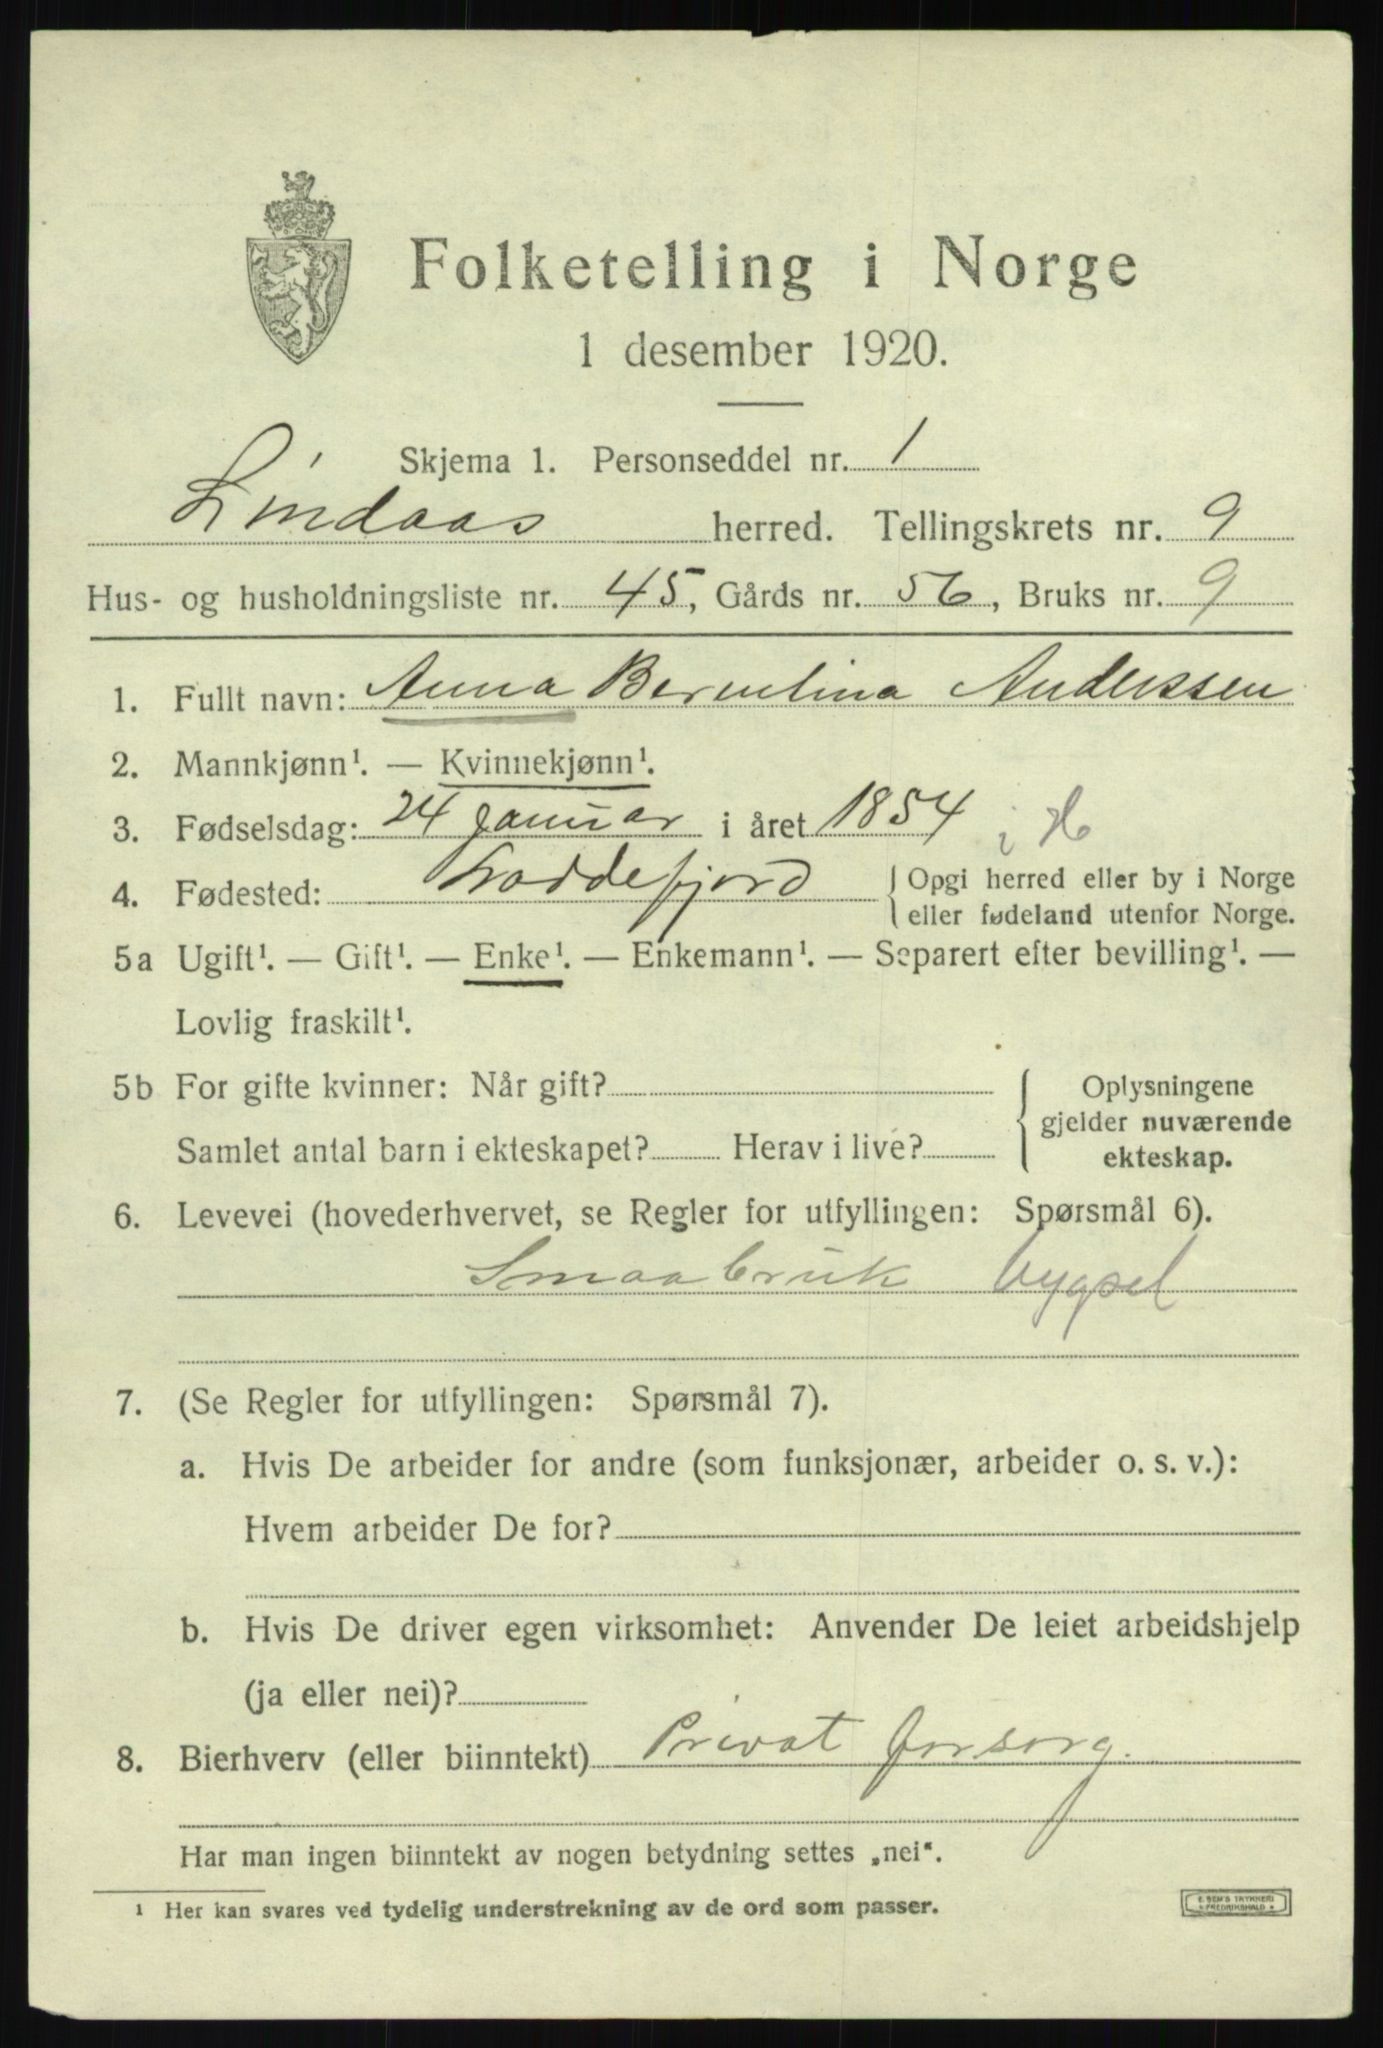 Folketelling i Norge
1 desember 1920.
Skjema 1. Personseddel nr. 1
Lindaas herred. Tellingskrets nr. 9
Hus- og husholdningsliste nr. 45, Gårds nr. 56, Bruks nr. 9
1. Fullt navn: Anna Berntina Anderssen
2. Mannkjønn¹. — Kvinnekjønn¹.
3. Fødselsdag: 24 januar i året 1854
4. Fødested: Loddefjord { Opgi herred eller by i Norge
eller fødeland utenfor Norge.
5a Ugift¹. — Gift¹. — Enke¹. — Enkemann¹. — Separert efter bevilling¹. —
Lovlig fraskilt¹.
5b For gifte kvinner: Når gift?
Samlet antal barn i ekteskapet? Herav i live?
Oplysningene
gjelder nuværende
ekteskap.
6. Levevei (hovederhvervet, se Regler for utfyllingen: Spørsmål 6).
Smaabruk bygsel
7. (Se Regler for utfyllingen: Spørsmål 7).
a. Hvis De arbeider for andre (som funksjonær, arbeider o. s. v.):
Hvem arbeider De for?
b. Hvis De driver egen virksomhet: Anvender De leiet arbeidshjelp
(ja eller nei)?
8. Bierhverv (eller biinntekt) Privat forsorg.
Har man ingen biinntekt av nogen betydning settes „nei“.
¹ Her kan svares ved tydelig understrekning av de ord som passer.
E. SEM'S TRYKKERI
FREDRIKSHALD